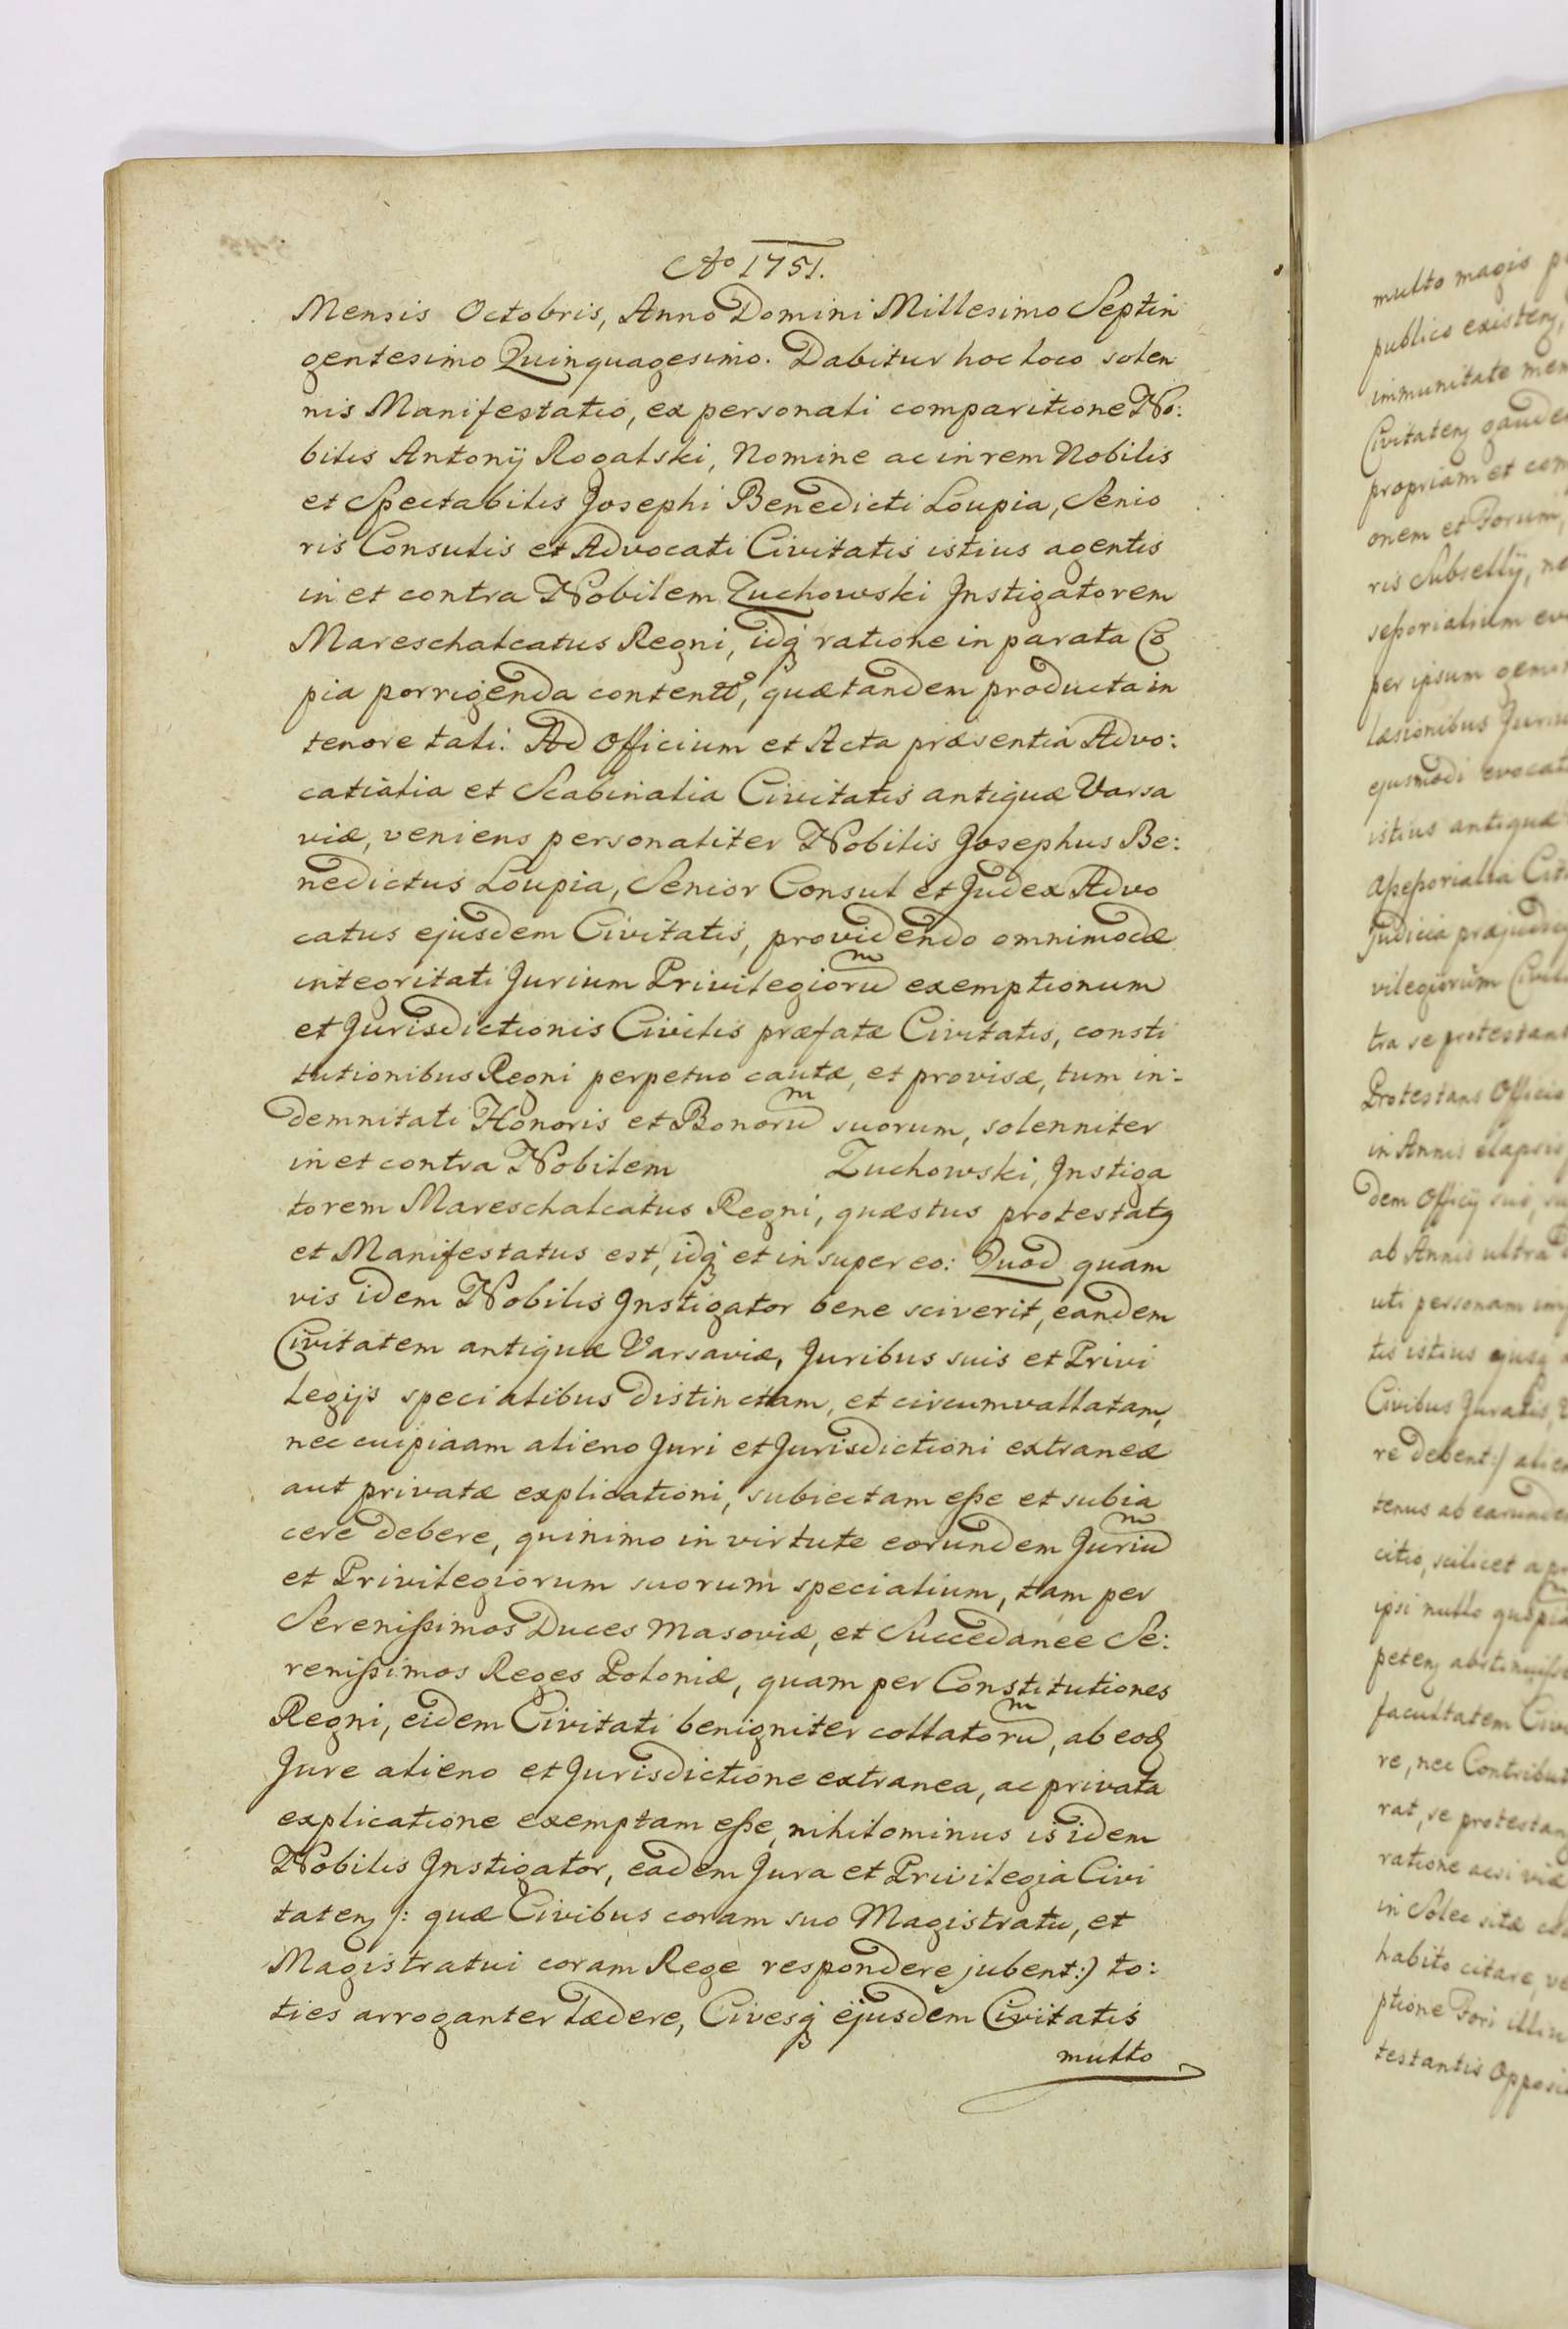 Ao 1751.
Mensis Octobris, Anno Domini Millesimo Septin
gentesimo Quinquagesimo. Dabitur hoc loco solen
nis Manifestatio, ex personali comparitione No:
bilis Antonij Rogalski, Nomine ac in rem Nobilis
et Spectabilis Josephi Benedicti Loupia, Senio
ris Consulis et Advocati Civitatis istius agentis
in et contra Nobilem Zuchowski Jnstigatorem
Mareschalcatus Regni, idq ratione in parata Co
pia porrigenda contentto, quætandem producta in
tenore tali: Ad Officium et Acta præsentia Advo:
catialia et Scabinalia Civitatis antiquæ Varsa
viæ, veniens personaliter Nobilis Josephus Be:
nedictus Loupia, Senior Consul et Judex Advo
catus ejusdem Civitatis, providendo omnimodæ
integritati Jurium Privilegiorum exemptionum
et Jurisdictionis Civilis præfatæ Civitatis, consti
tutionibus Regni perpetuo cautæ, et provisæ, tum in:
demnitati Honoris et Bonorum suorum, solenniter
in et contra Nobilem Zuchowski, Jnstiga
torem Mareschalcatus Regni, quæstus protestatg
et Manifestatus est, idq et in super eo: Quod quam
vis idem Nobilis Jnstigator bene sciverit, eandem
Civitatem antiquæ Varsaviæ, Juribus suis et Privi
legijs specialibus distinctam, et circumvallatam,
nec cuipiaam alieno Juri et Jurisdictioni extraneæ
aut privatæ explicationi, subiectam eße et subia
cere debere, quinimo in virtute eorundem Jurium
et Privilegiorum suorum specialium, tam per
Serenißimos Duces Masoviæ, et Succedanee Se:
renißimos Reges Poloniæ, quam per Constitutiones
Regni, eidem Civitati benigniter collatorum, ab eod
Jure alieno et Jurisdictione extranea, ac privata
explicatione exemptam eße, nihilominus is idem
Nobilis Jnstigator, eadem Jura et Privilegia Civi
tateng /: quæ Civibus coram suo Magistratu, et
Magistratui coram Rege respondere jubent:) to:
ties arroganter lædere, Civesq ejusdem Civitatis
multo
multo magis
publico existeng,
immunitate
Civitateng
propriam et
onem et Forum,
ris Subsellij,
per ipsum
læsionibus
ejusmodi
istius antiquæ
Judicia
vilegiorum
tra se
Protestans Officio
in Annis elapsis
dem Officij suo,
ab Annis ultra
uti personam
tis istius
Civibus Juratis,
re debent:/
tenus ab
citio, scilicet
ipsi nullo
facultatem
re, nec
rat, se
ratione
in Solec sitæ
habito citare,
ptione Fori
testantis